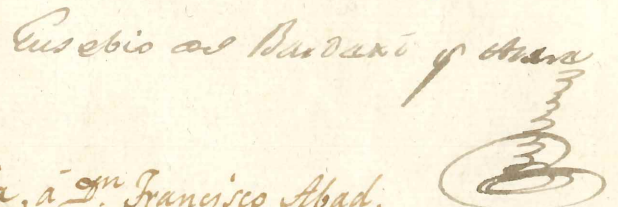 Eusebio de Bardaxi y Azara
a, á Dn. Francisco Abad.